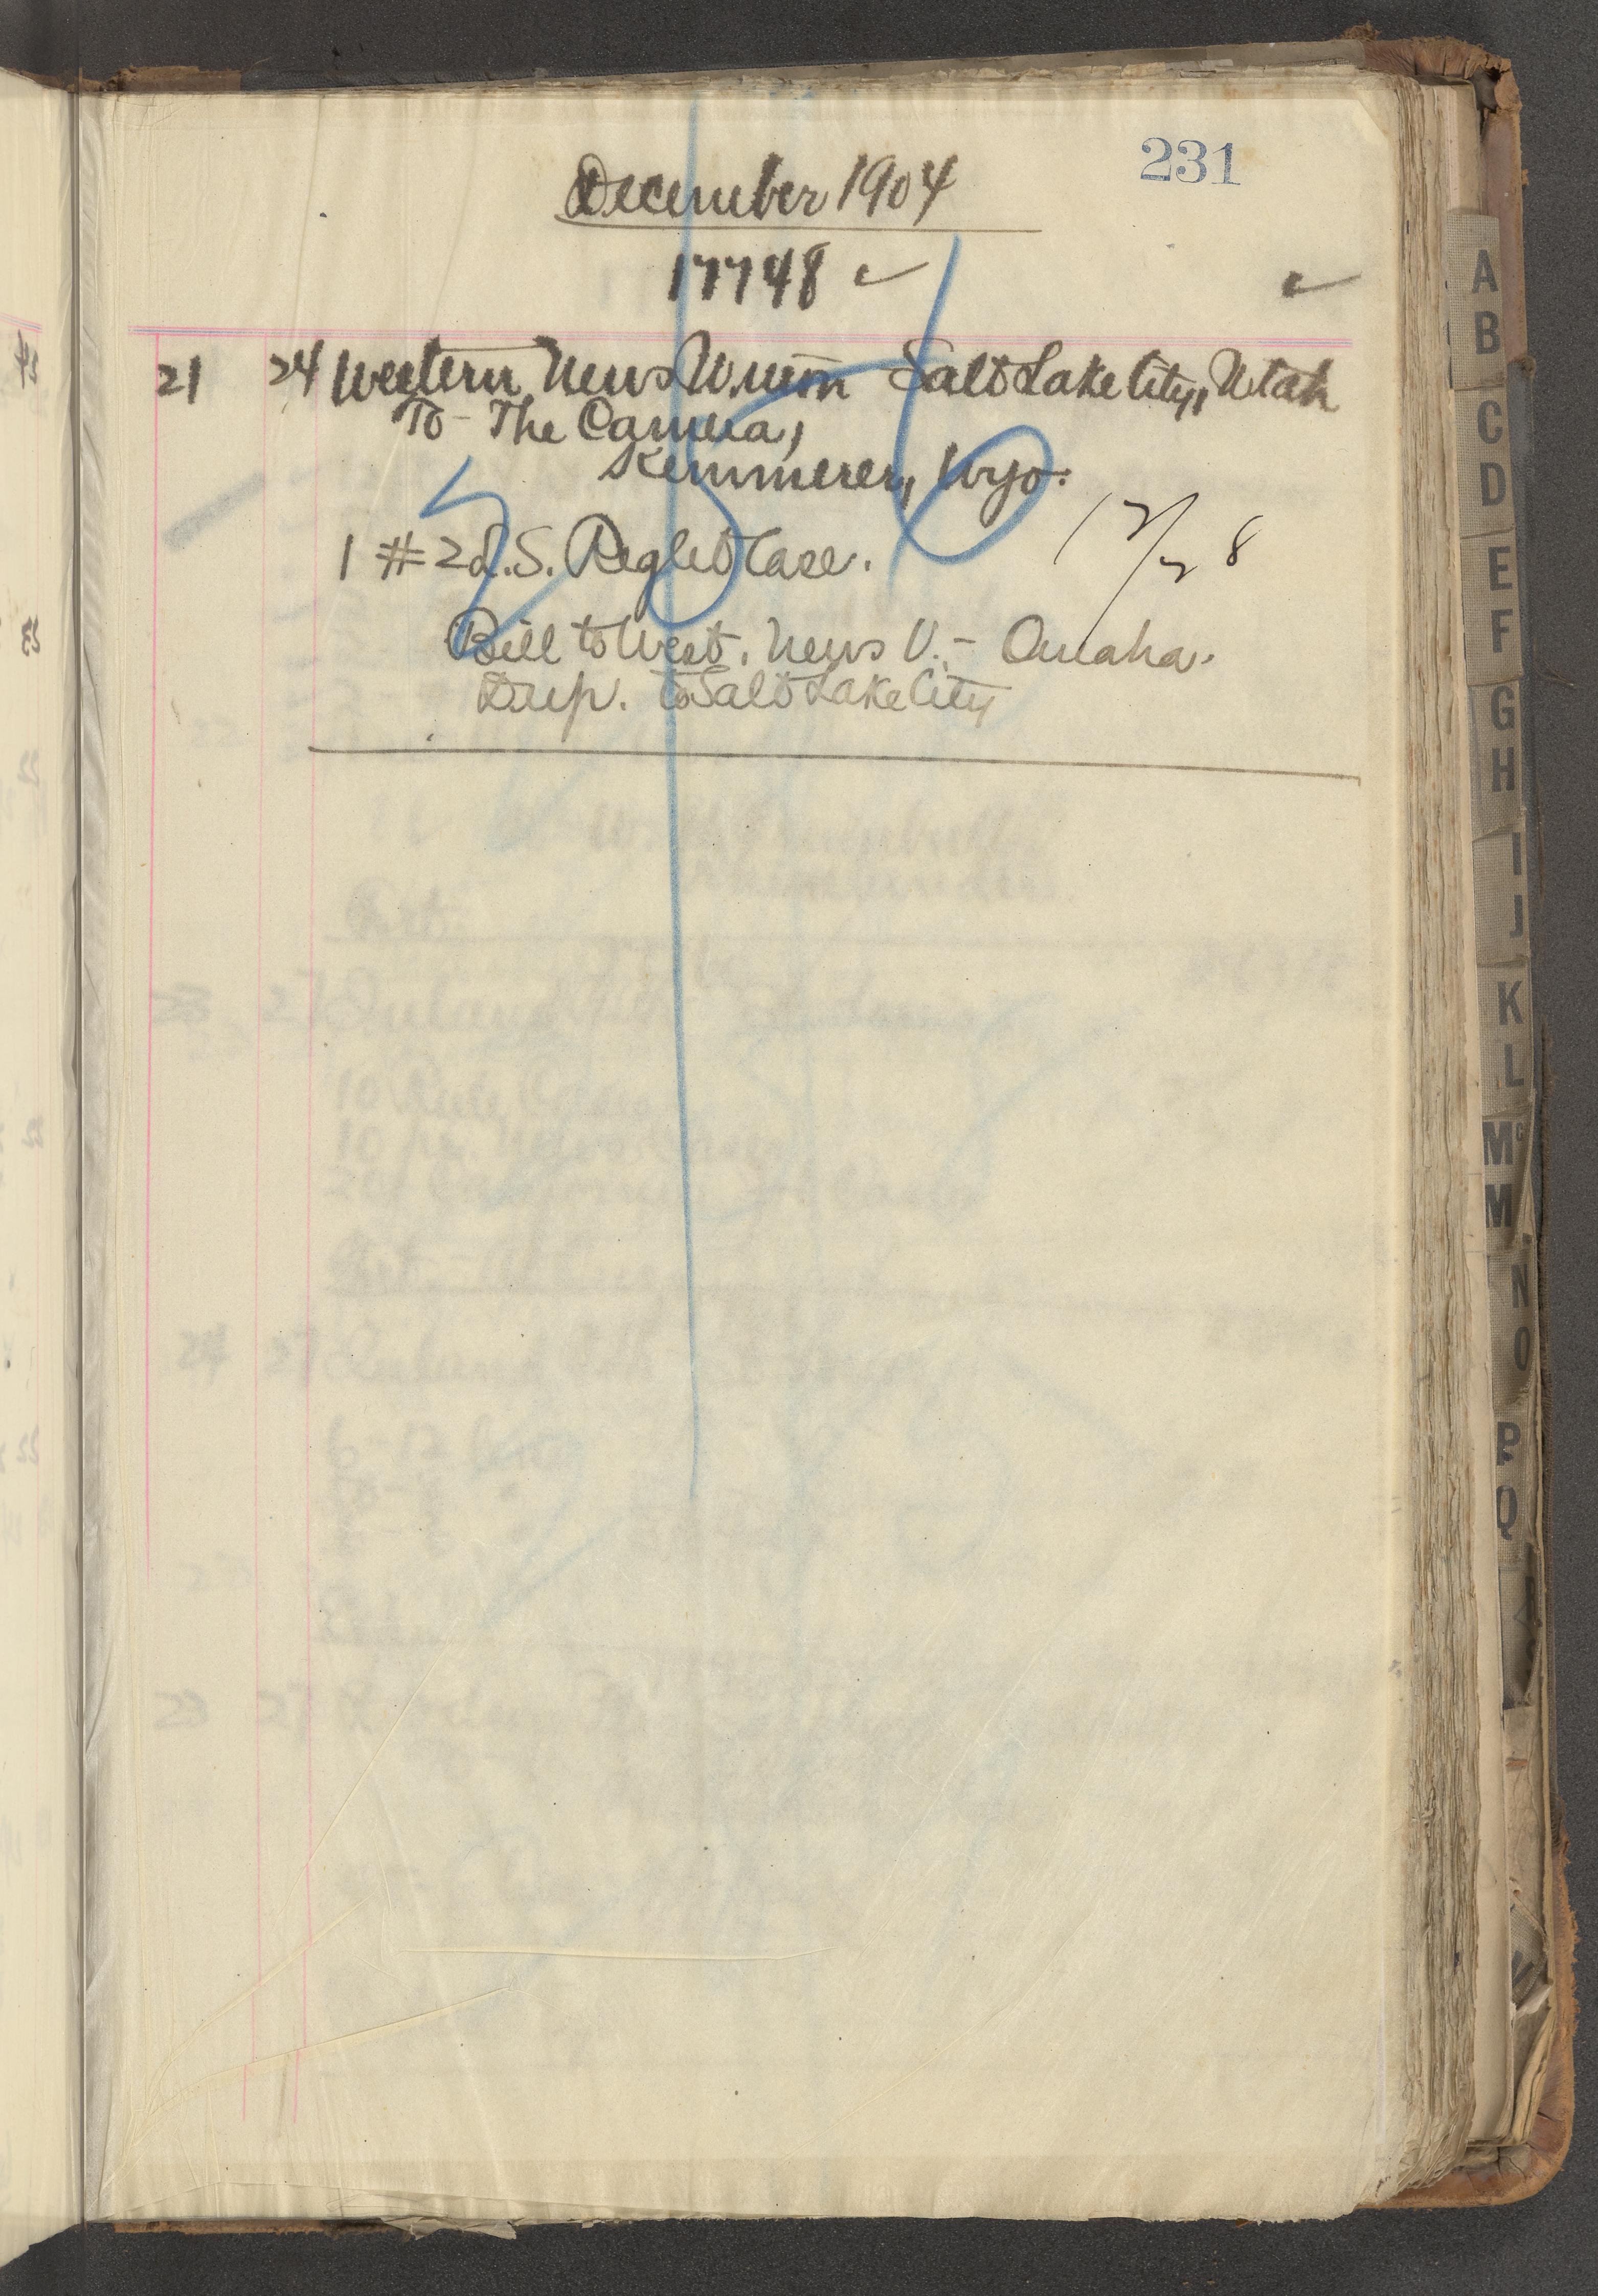 231
December 1904
17748 ✓ ✓
21 24 Western News Union Salt Lake City, Utah
To - The Camera,
Kemmerer, Wyo.
1 #2 L.S. Reglet Case. 12/28
Bill to West. News U. - Omaha.
Dup. to Salt Lake City
A
B
C
D
E
F
G
H
I
J
K
L
Mc
M
N
O
P
Q